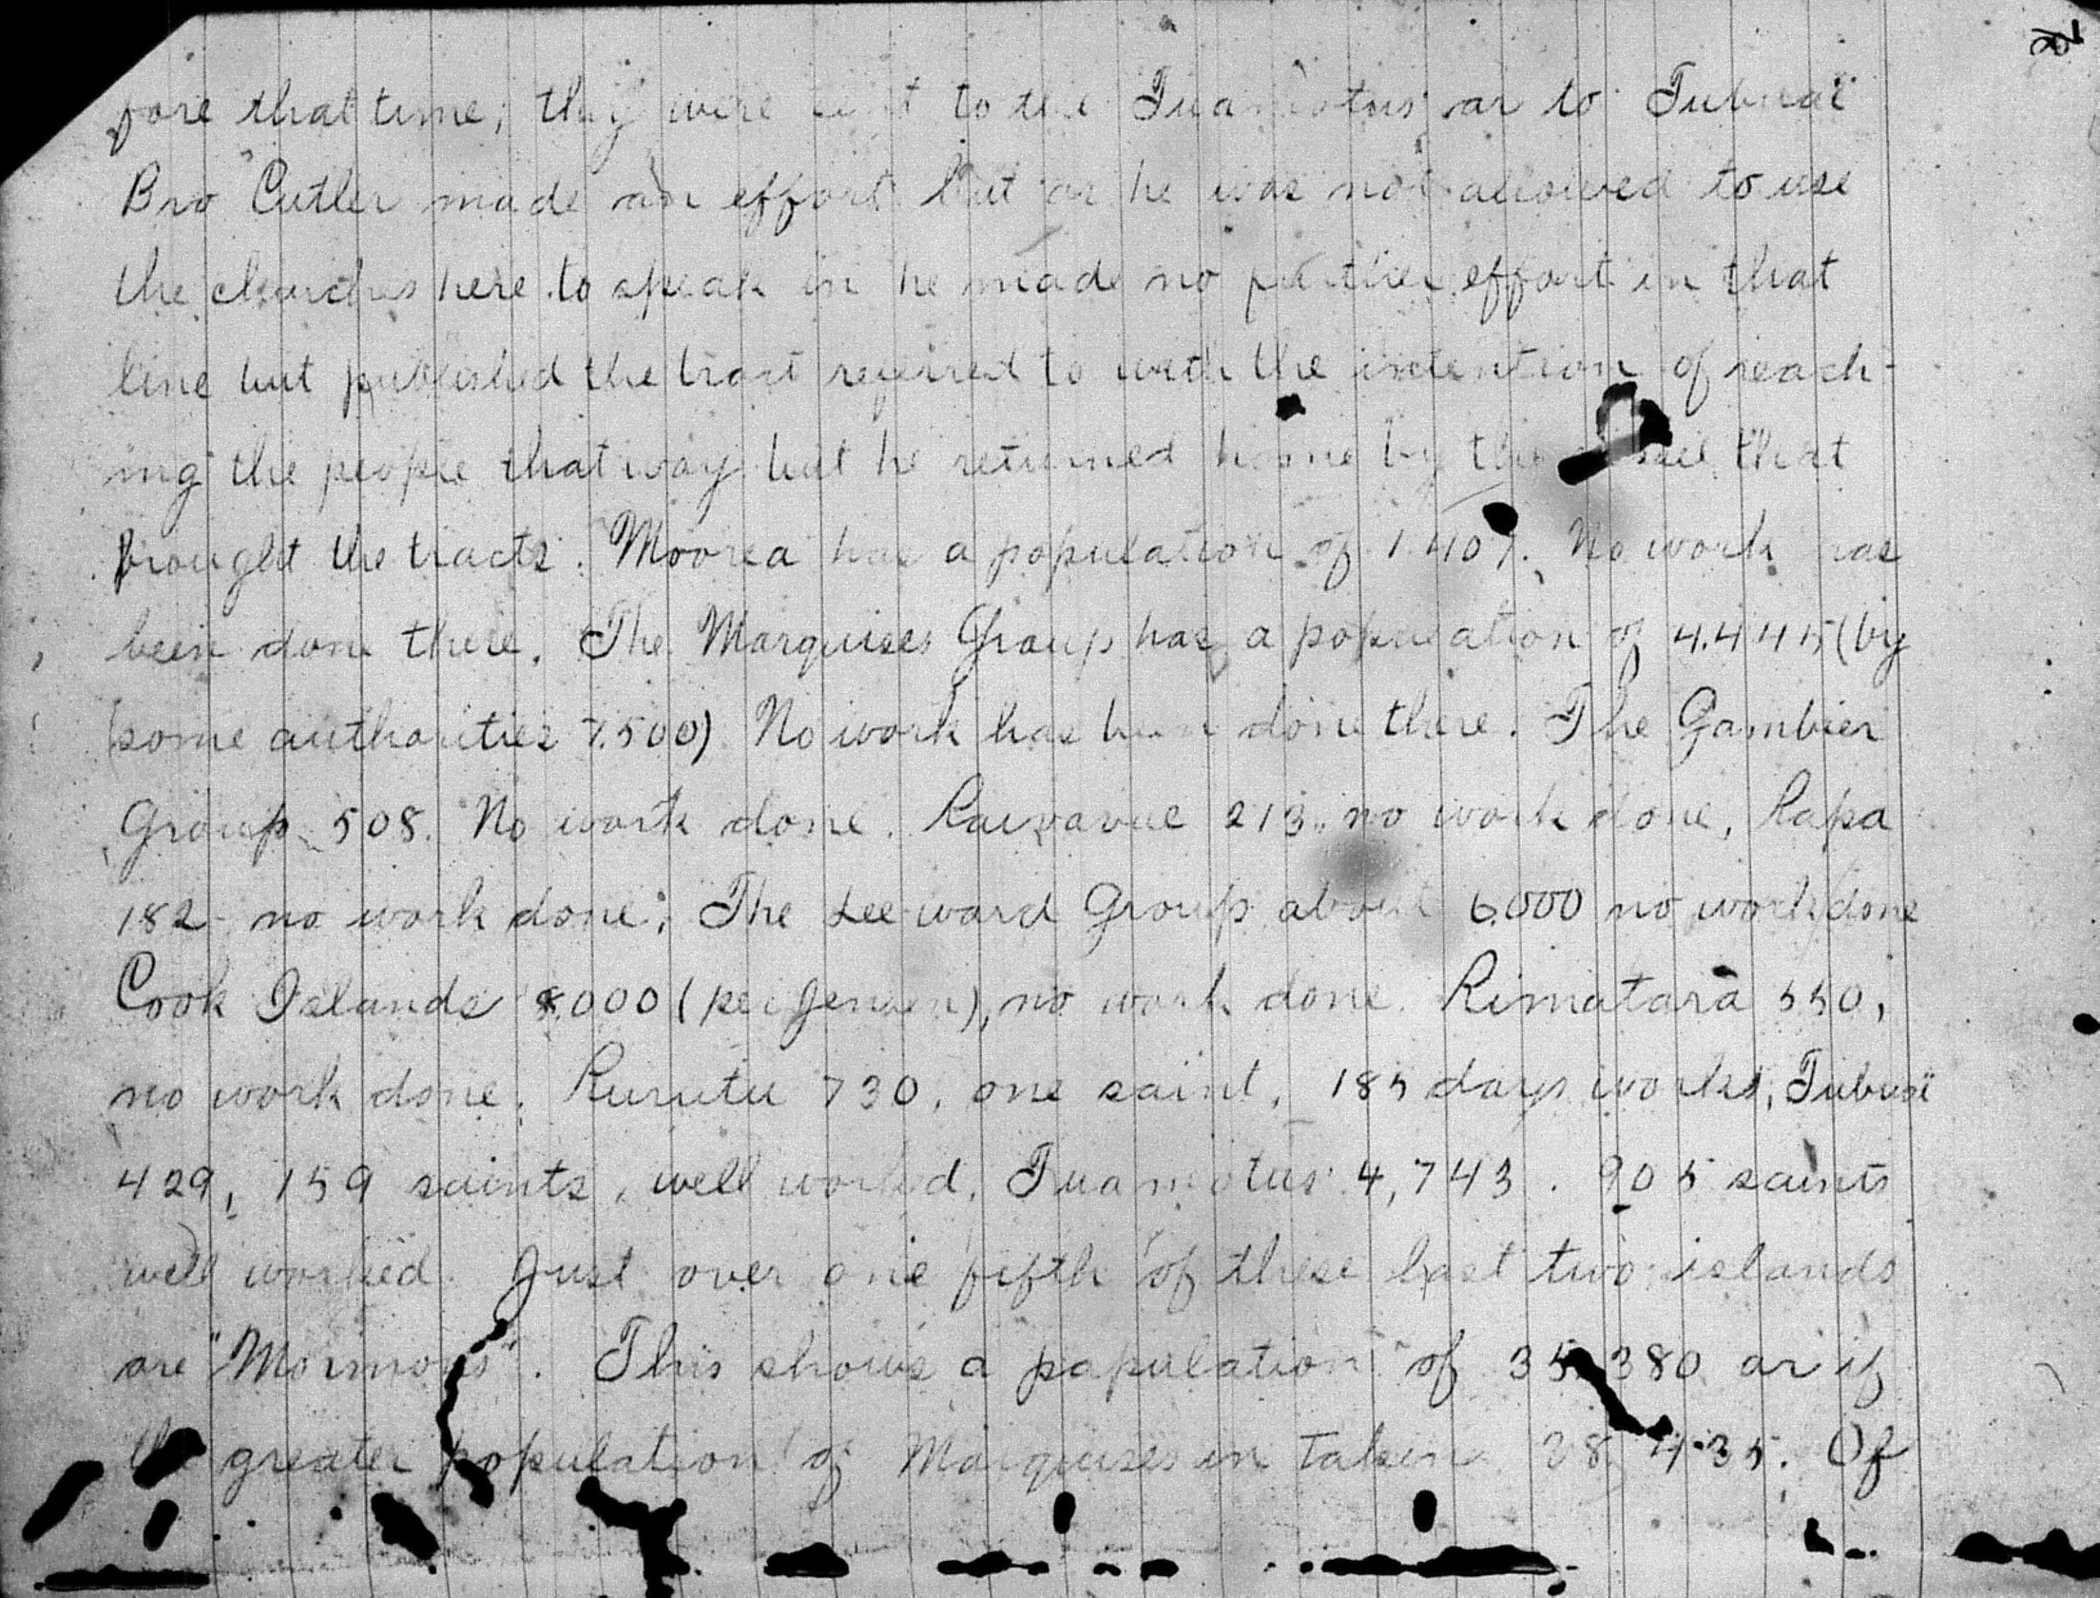 fore that time, they were sent to the Tuamotus or to Tubuai
Bro Cutler made an effort but as he was not allowed to use
the churches here to speak in he made no further effort in that
line but published the tract referred to with the intention of reach-
ing the people that way but he returned home by the that
brought the tracts. Moorea has a population of 1.407. No work has
been done there. The Marquises Group has a population of 4.445 (by
some authorities 7.500) No work has been done there. The Gambier
Group 508. No work done. Raivavae 213. no work done, Rapa
182 - no work done; The Leeward Group about 6.000 no work done
Cook Islands 8.000 (per Jensen), no work done. Rimatara 550,
no work done. Rurutu 730, one saint, 185 days works, Tubuai
429, 159 saints, well worked, Tuamotus 4,743. 905 saints
well worked. Just over one fifth of these last two islands
are "Mormons". This shows a population of 35,380 or if
the greater population of Marquises in taken 38,435. Of